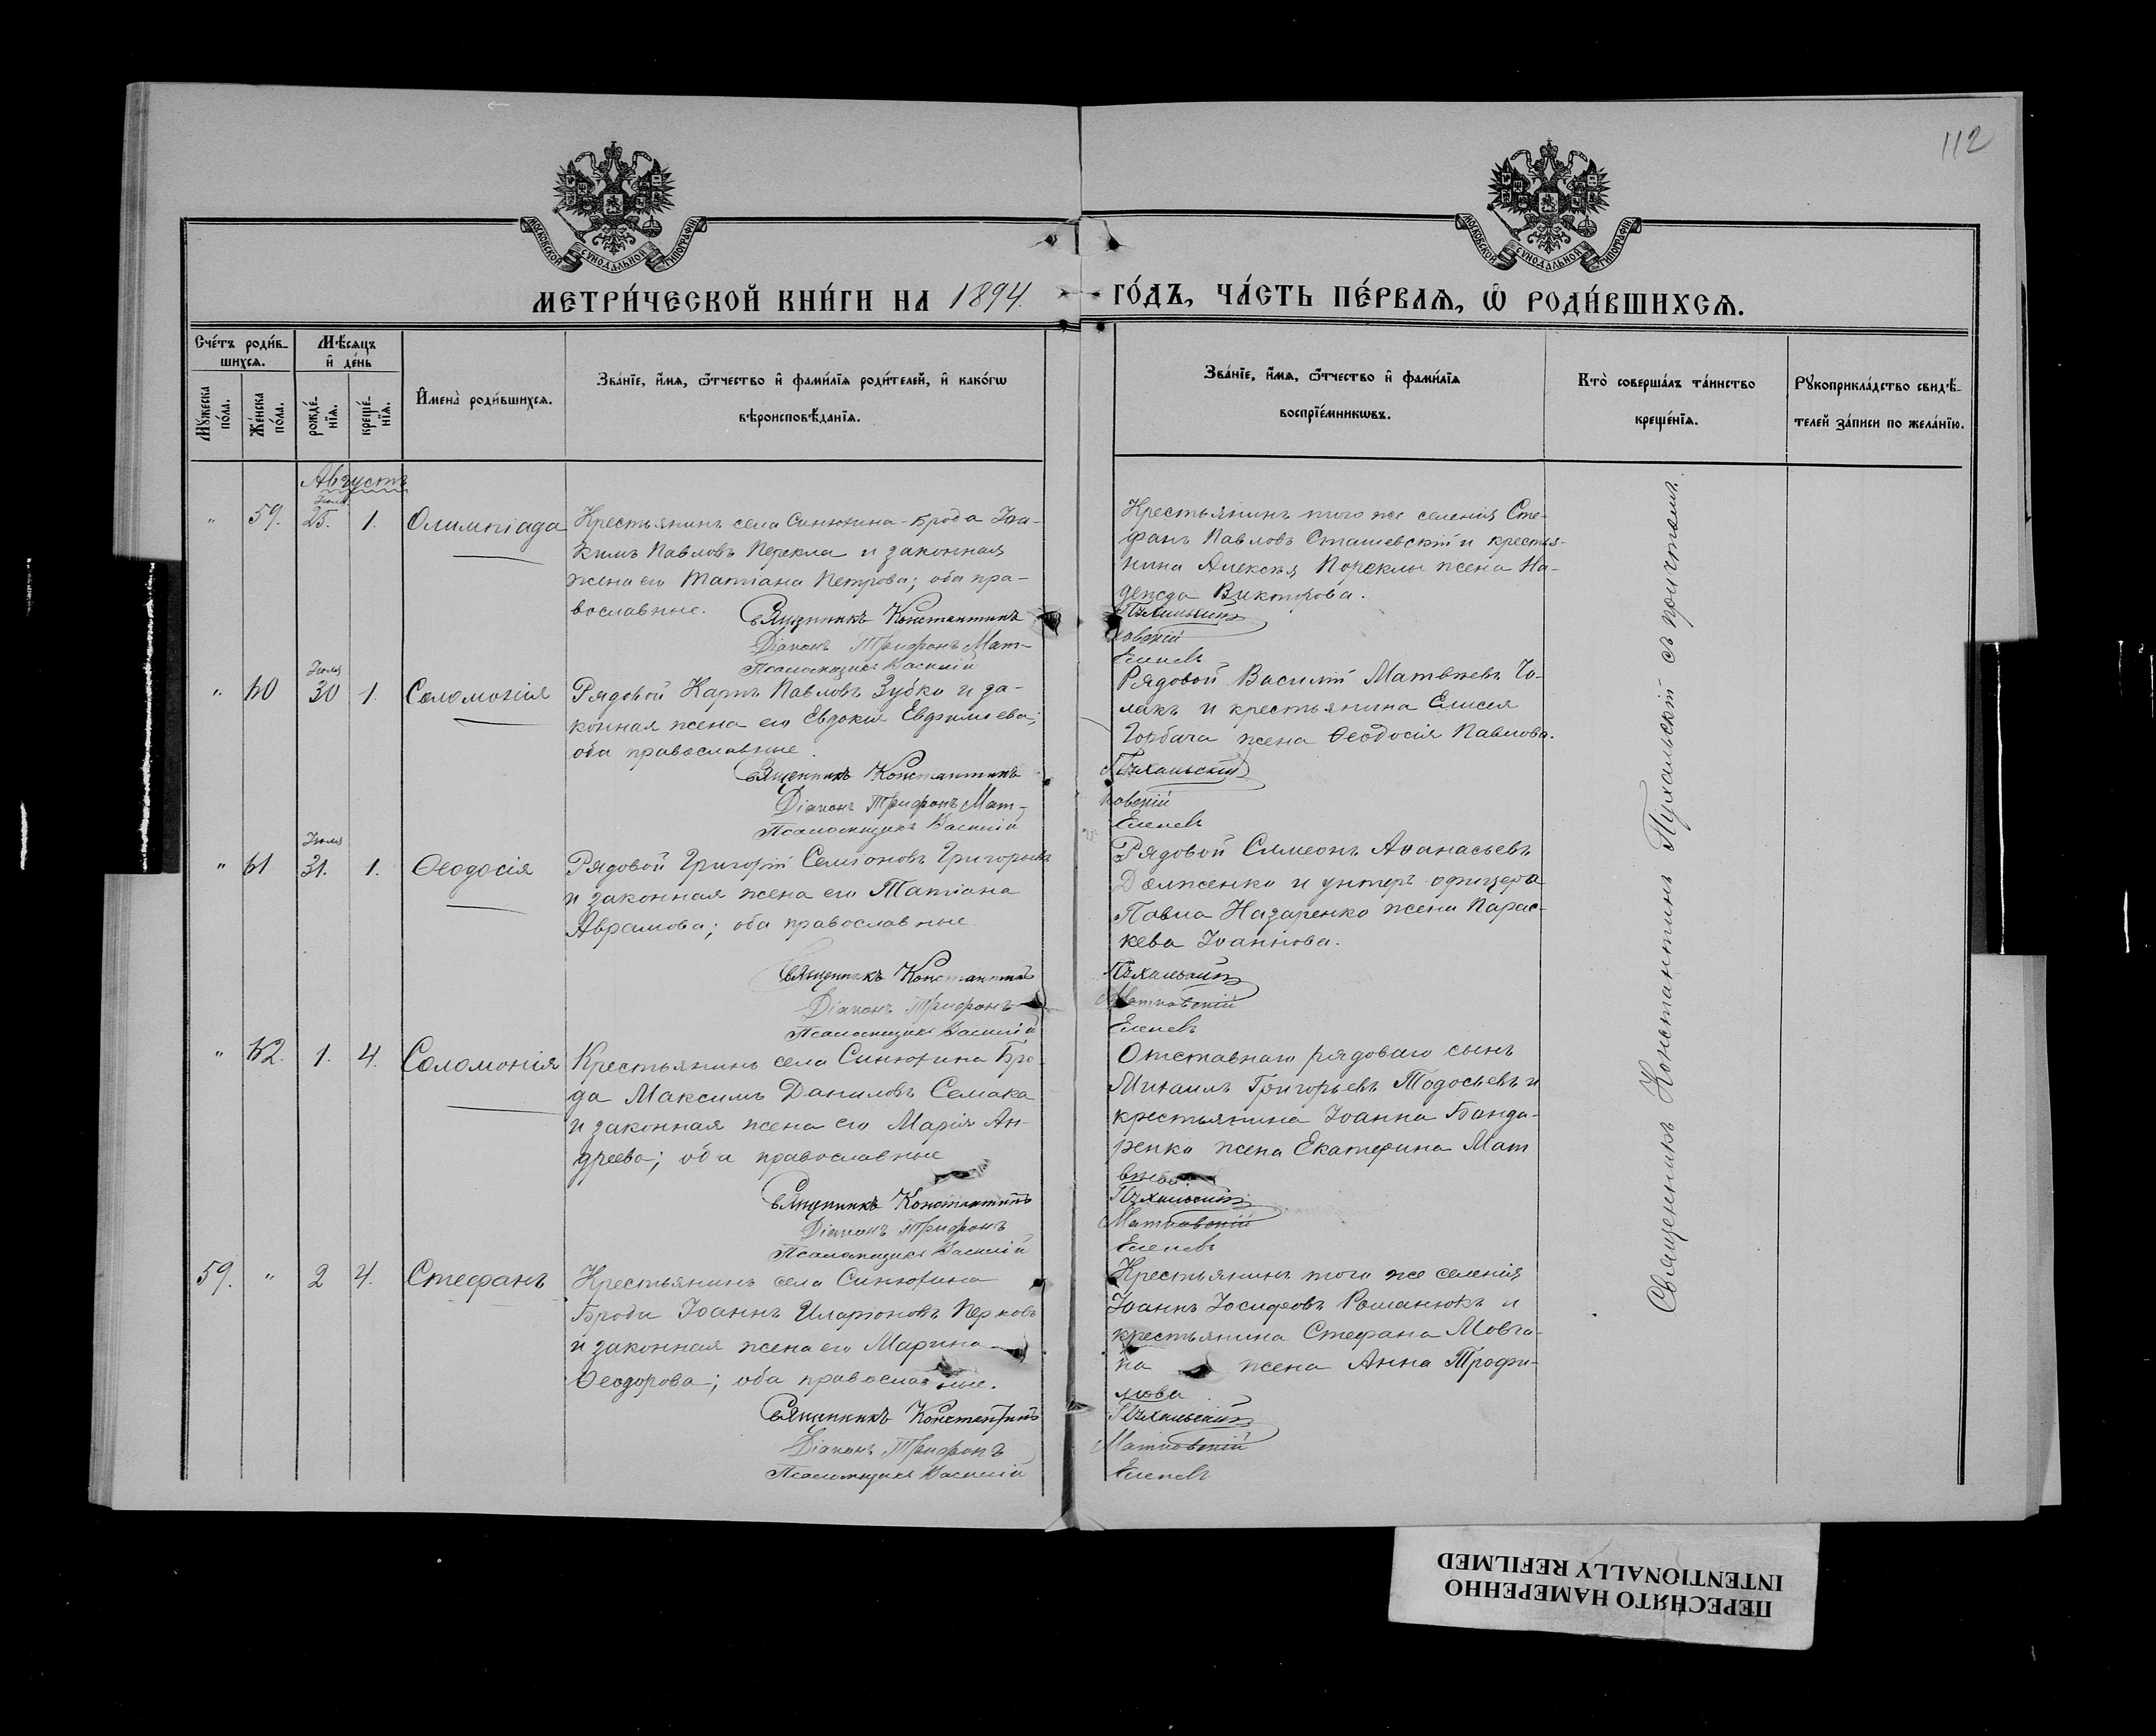 112
МОСКОВСКОЙ СУНОДАЛЬНОЙ ТИПОГРАФІИ
МОСКОВСКОЙ СУНОДАЛЬНОЙ ТИПОГРАФІИ
МЕТРИ́ЧЕСКОЙ КНИ́ГИ НА 1894. ГО́ДЪ, ЧА́СТЬ ПЕ́РВАѦ, Ѽ РОДИ́ВШИХСѦ.
Сче́тъ роди́в-
шихсѧ.
Мꙋ́жеска
по́ла.
Же́нска
по́ла.
Мѣ́сѧцъ
и҆ де́нь
рожде́-
нїѧ.
креще́-
нїѧ.
И҆мена̀ роди́вшихсѧ.
Зва́нїе, и҆́мѧ, ѻ҆́тчество и҆ фами́лїѧ роди́телей, и҆ како́гѡ
вѣроисповѣ́данїѧ.
Зва́нїе, и҆́мѧ, ѻ҆́тчество и҆ фами́лїѧ
воспрїе́мникѡвъ.
Кто̀ соверша́лъ та́инство
креще́нїѧ.
Рꙋкоприкла́дство свидѣ́-
телей за́писи по жела́нїю.
Августъ
Іюля
" 59. 25. 1. Олимпіада
Крестьянинъ села Синюхина-Брода Іоа-
кимъ Павловъ Перекла и законная
жена его Татіана Петрова; оба пра-
вославные.
Священникъ Константинъ
Діаконъ Трифонъ Мат-
Псаломщикъ Василій
Крестьянинъ того же селенія Сте-
фанъ Павловъ Сташевскій и крестья-
нина Алексѣя Пореклы жена На-
дежда Викторова.
Пухальскій
ковскій
Еленевъ
Іюля
" 60 30 1. Соломонія
Рядовой Карпъ Павловъ Зубко и за-
конная жена его Евдокія Евфиміева;
оба православные.
Священникъ Константинъ
Діаконъ Трифонъ Мат-
Псаломщикъ Василій
Рядовой Василій Матвѣевъ
и крестьянина Елисея
Горбача жена Ѳеодосія Павлова.
Пухальскій
ковскій
Еленевъ
Іюля
" 61 31. 1. Ѳеодосія
Рядовой Григорій Семіоновъ Григорьевъ
и законная жена его Татіана
Аврамова; оба православные
Священникъ Константинъ
Діаконъ Трифонъ
Псаломщикъ Василій
Рядовой Симеонъ Аѳанасьевъ
Должѣнко и унтеръ-офицера
Павла Назаренко жена Парас-
кева Іоаннова.
Пухальскій
Матковскій
Еленевъ
" 62. 1. 4. Соломонія
Крестьянинъ села Синюхина Бро-
да Максимъ Даниловъ Семака
и законная жена его Марія Ан-
дреева; оба православные
Священникъ Константинъ
Діаконъ Трифонъ
Псаломщикъ Василій
Отставнаго рядоваго сынъ
Михаилъ Григорьевъ Тодосьевъ и
крестьянина Іоанна Банда-
ренка жена Екатерина Мат
вѣева.
Пухальскій
Матковскій
Еленевъ
59. " 2 4. Стефанъ
Крестьянинъ села Синюхина
Брода Іоаннъ Иларіоновъ
и законная жена его Марина
Ѳеодорова; оба православные.
Священникъ Константинъ
Діаконъ Трифонъ
Псаломщикъ Василій
Крестьянинъ того же селенія
Іоаннъ Іосифовъ Романюкъ и
крестьянина Стефана Мовча-
на жена Анна Трофи-
мова
Пухальскій
Матковскій
Еленевъ
Священникъ Константинъ Пухальскій съ причтомъ.
ПЕРЕСНЯТО НАМЕРЕННО
INTENTIONALLY REFILMED